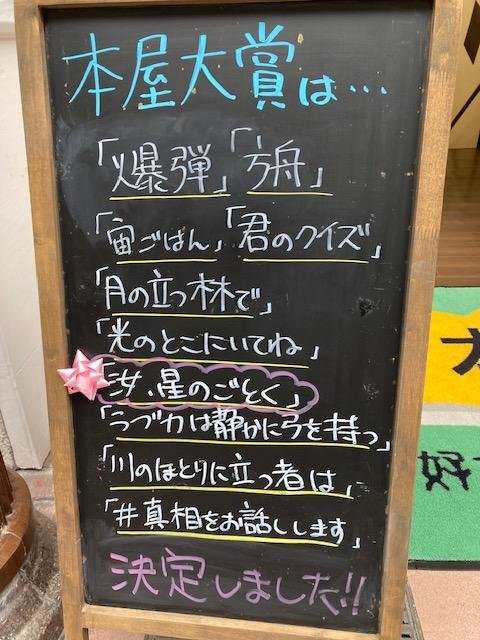 本屋大賞は…
「爆弾」「方舟」
「宙ごはん」「君のクイズ」
「月の立つ林で」
「光のとこにいてね」
「汝、星のごとく」
「ラブカは静かに弓を持つ」
「川のほとりに立つ者は」
「#真相をお話しします」
決定しました!!
好